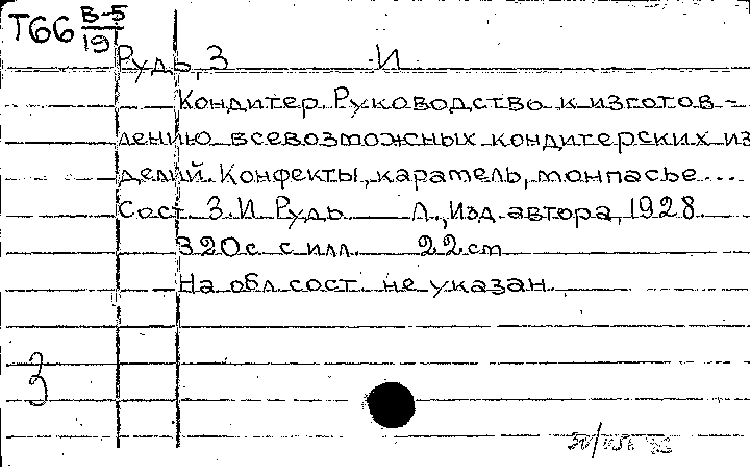 Т66 В-5
19
Рудь, З И
Кондитер. Руководство к изготов-
лению всевозможных кондитерских из
делий. Конфекты, карамель, монпасье...
Сост. З.И. Рудь Л., Изд. автора, 1928.
320с. с илл. 22 cm
На обл. сост. не указан.
З